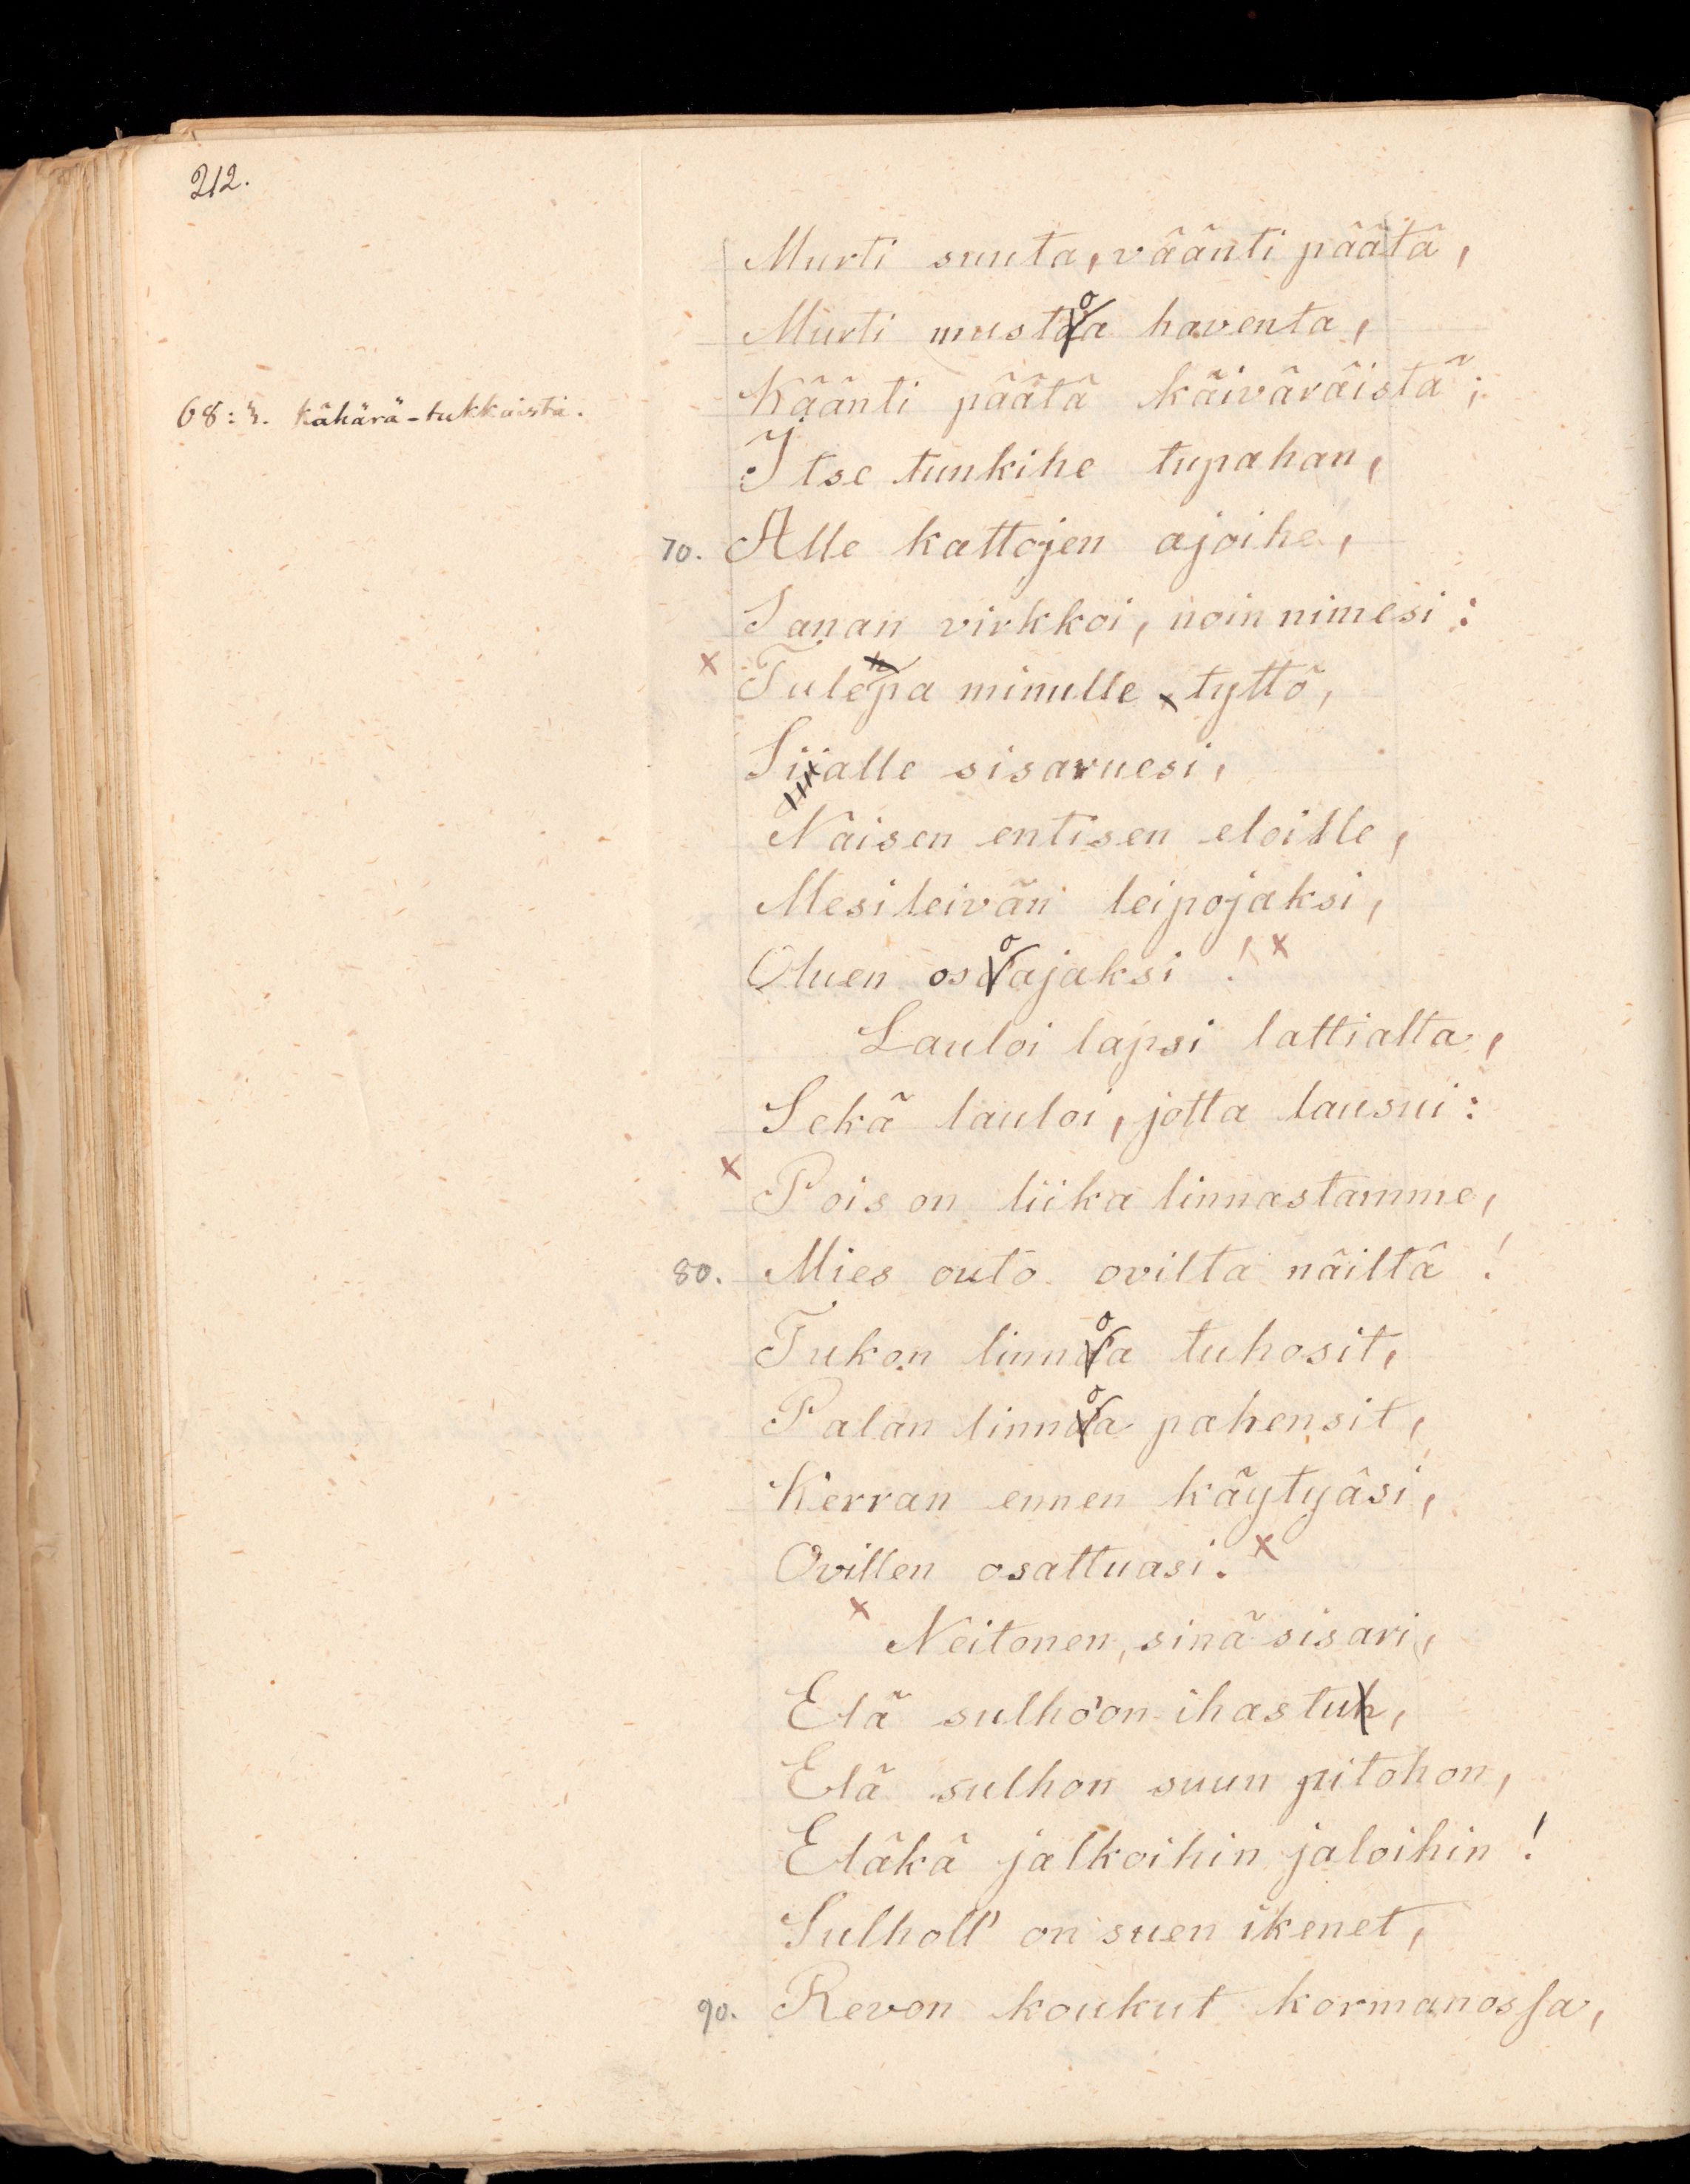 212.
Murti suuta, väänti päätä,
Murti mustoa haventa,
Käänti päätä käiväräistä;
68: 3. kähärä-tukkaista.
Itse tunkihe tupahan,
70. Alle kattojen ajoihe,
Sanan virkkoi, noin nimesi:
x Tulepa minulle x tyttö,
Siialle sisaruesi,
Näisen entisen eloille,
Mesileivän leipojaksi,
Oluen osoajaksi! x
Lauloi lapsi lattialta,
Sekä lauloi, jotta lausui:
x Pois on liika linnastamme,
80. Mies outo ovilta näiltä!
Tukon linnoa tuhosit,
Palan linnoa pahensit,
Kerran ennen käytyäsi,
Ovillen osattuasi. x
x Neitonen, sinä sisari,
Elä sulho'on ihastu,
Elä sulhon suun pitohon,
Eläkä jalkoihin jaloihin!
Sulholl' on suen ikenet,
90. Revon koukut kormanossa,